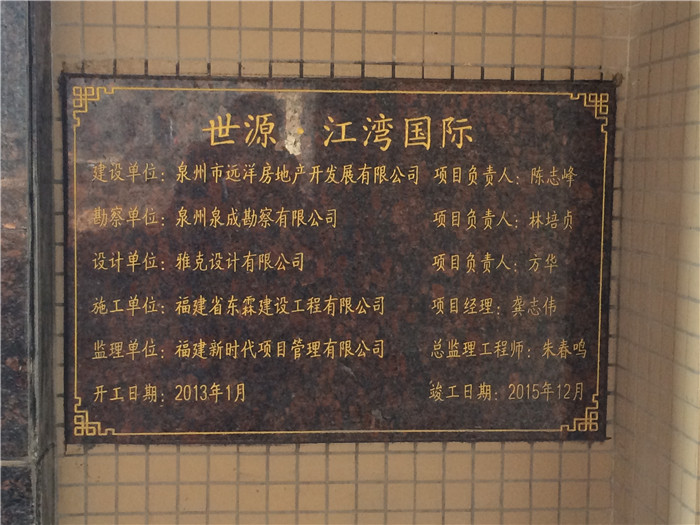 世源·江湾国际
建设单位：泉州市远洋房地产开发展有限公司 项目负责人：陈志峰
勘察单位：泉州泉成勘察有限公司 项目负责人：林培贞
设计单位：雅克设计有限公司 项目负责人：方华
施工单位：福建省东霖建设工程有限公司 项目经理：龚志伟
监理单位：福建新时代项目管理有限公司 总监理工程师：朱春鸣
开工日期：2013年1月 竣工日期：2015年12月